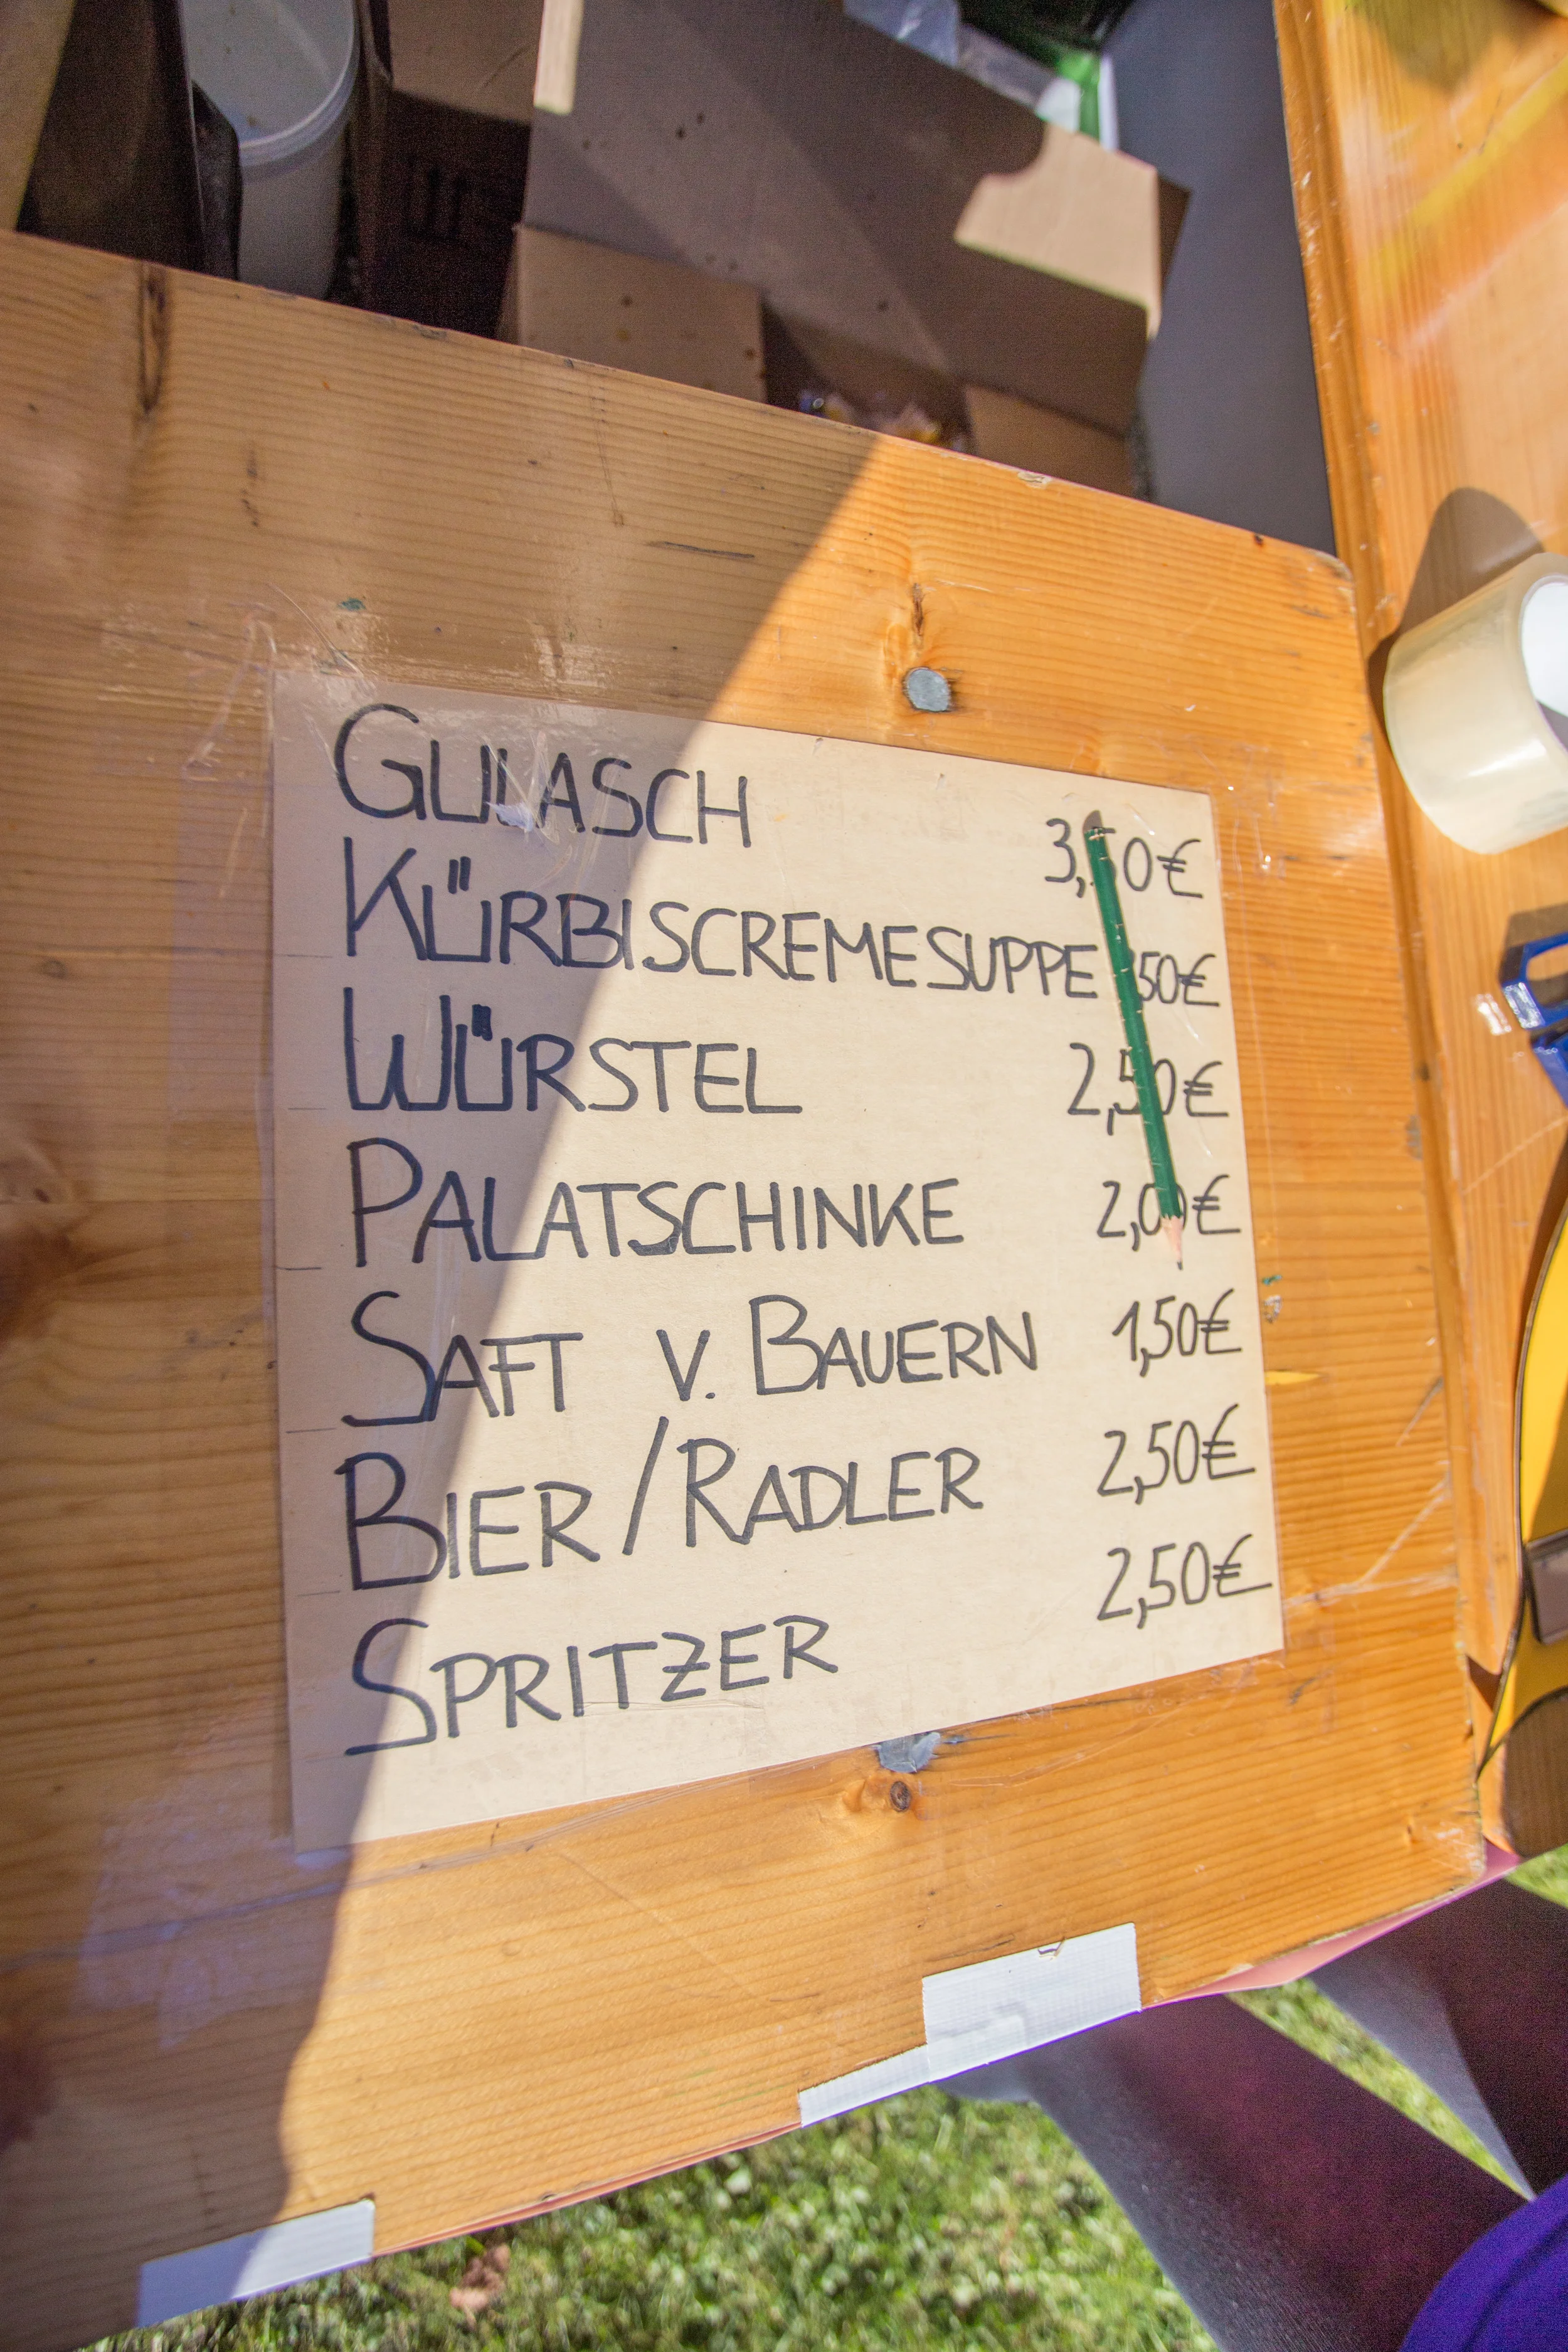 GULASCH 3,50€
KÜRBISCREMESUPPE 50€
WÜRSTEL 2,50€
PALATSCHINKE 2,00€
SAFT V. BAUERN 1,50€
BIER/RADLER 2,50€
SPRITZER 2,50€